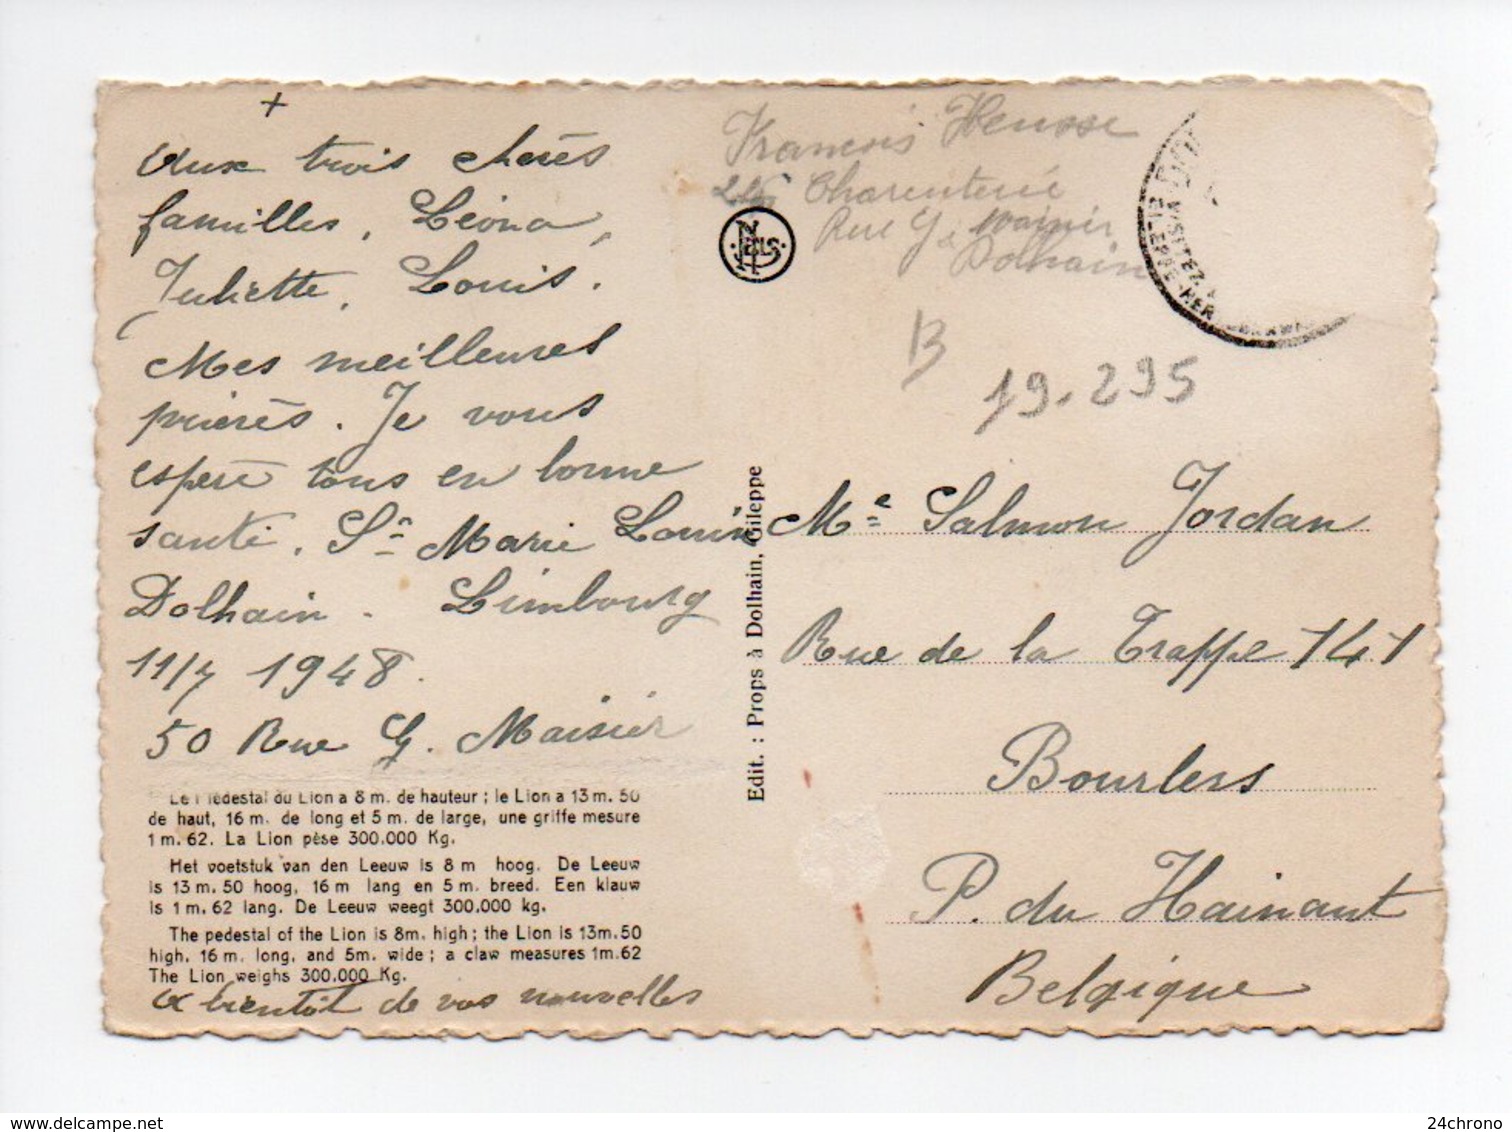 +
Aux trois cherès
familles, Léona,
Juliette, Louis.
Mes meilleures
prierès. Je vous
espère tous en bonne
santé. Sr Marie Louise
Dolhain - Limbourg
11/7 1948.
50 Rue G. Maisier
Le Piedestal du Lion a 8 m. de hauteur ; le Lion a 13 m. 50
de haut, 16 m. de long et 5 m. de large, une griffe mesure
1 m. 62. La Lion pèse 300.000 Kg.
Het voetstuk van den Leeuw is 8 m hoog. De Leeuw
is 13 m. 50 hoog, 16 m lang en 5 m. breed. Een klauw
is 1 m. 62 lang. De Leeuw weegt 300.000 kg.
The pedestal of the Lion is 8m. high ; the Lion is 13m.50
high, 16 m. long, and 5m. wide ; a claw measures 1m.62
The Lion weighs 300.000 Kg.
A bientôt de vos nouvelles
Edit. : Props à Dolhain, Gileppe
NELS
François Heusse
Charenterie
Rue G
Dolhain
VISITEZ
B
19.295
Me Salmon Jordan
Rue de la Trappe 141
Bourlers
P. du Hainaut
Belgique
24chrono